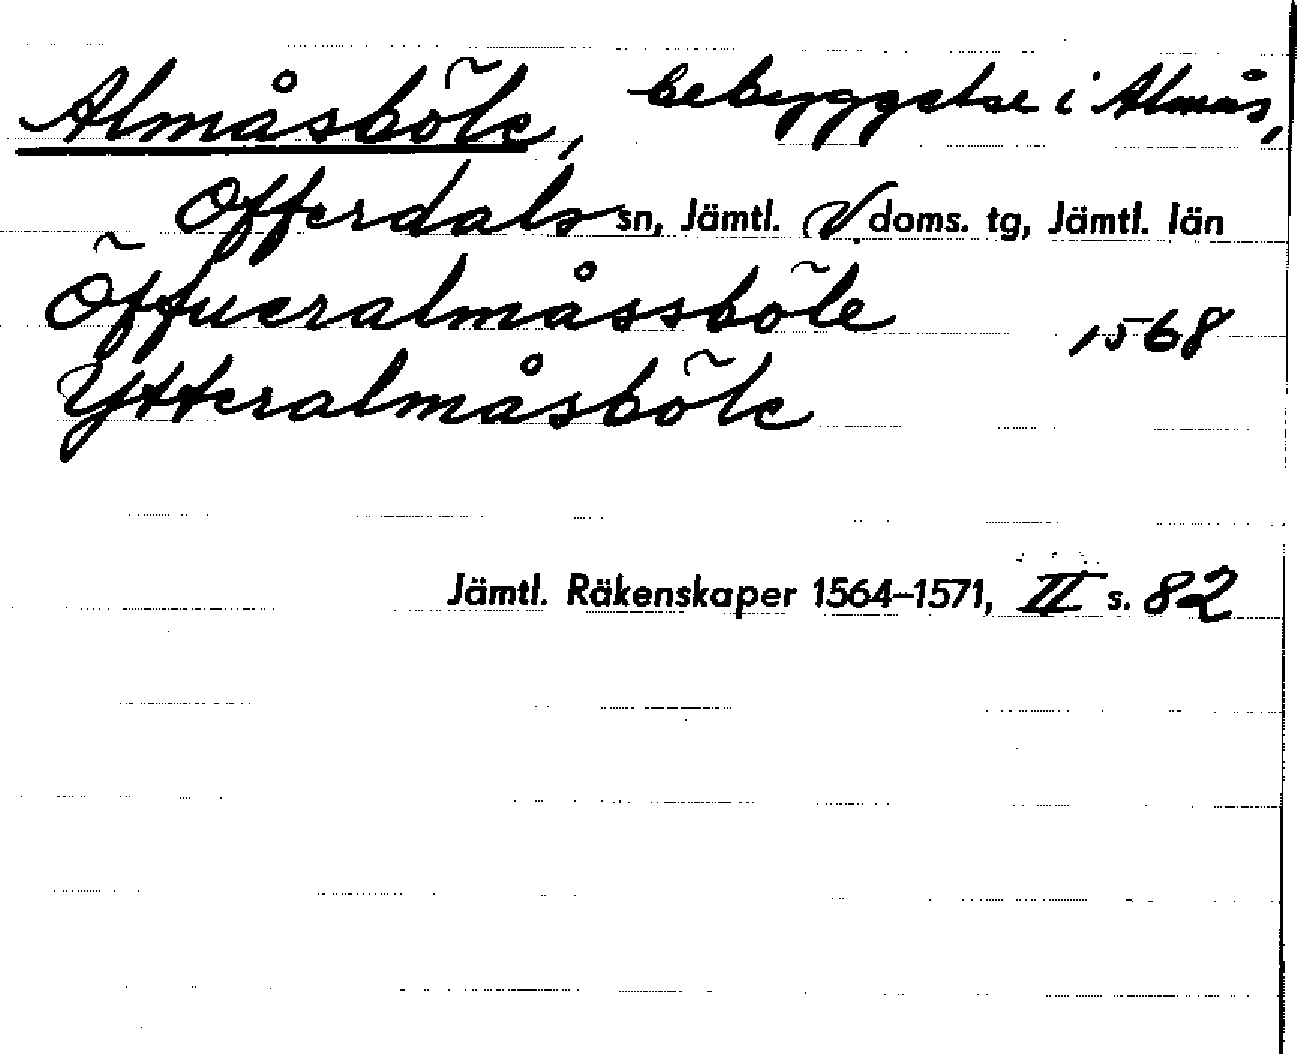 Almåsböle, bebyggelse i Almås,
Offerdals sn, Jämtl. V doms. tg, Jämtl. län
Öffueralmåssböle 1568
Ytteralmåsböle
Jämtl. Räkenskaper 1564–1571, II s. 82